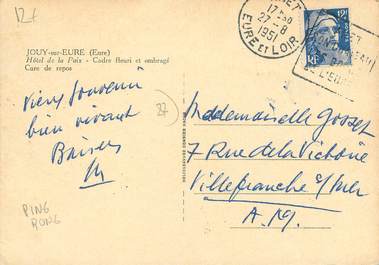 12f
JOUY-sur-EURE (Eure)
Hôtel de la Paix - Cadre fleuri et ombragé
Cure de repos
17 30
27 - 8
1951
EURE ET LOIR
RF
Vieux souvenir
bien vivant
Baisers
27
PING
PONG
Mademoiselle Gosset
7 Rue de la Victoire
Villefranche s/mer
A.M.